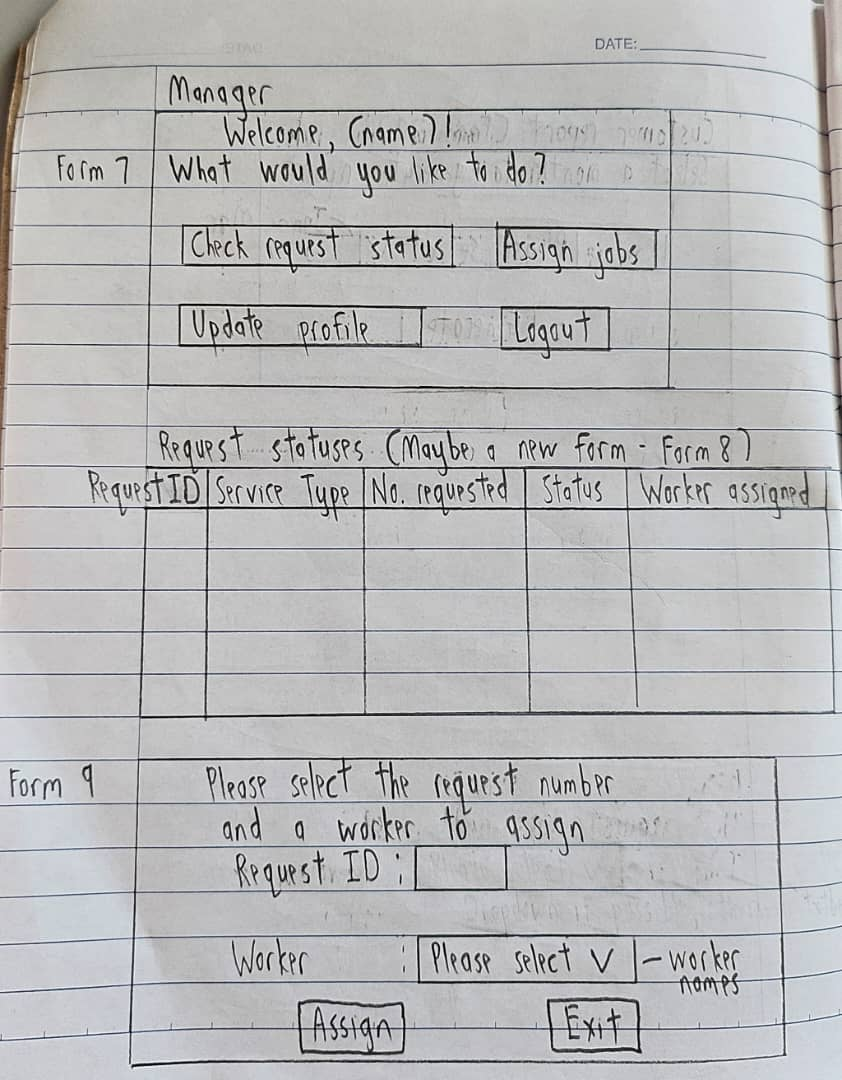 DATE:
Manager
Welcome, (name)!
Form 7
What would you like to do?
Check request status
Assign jobs
Update profile
Logout
Request statuses (Maybe a new form - Form 8)
Request ID
Service Type
No. requested
Status
Worker assigned
Form 9
Please select the request number
and a worker to assign
Request ID :
Worker : Please select V - worker
names
Assign
Exit